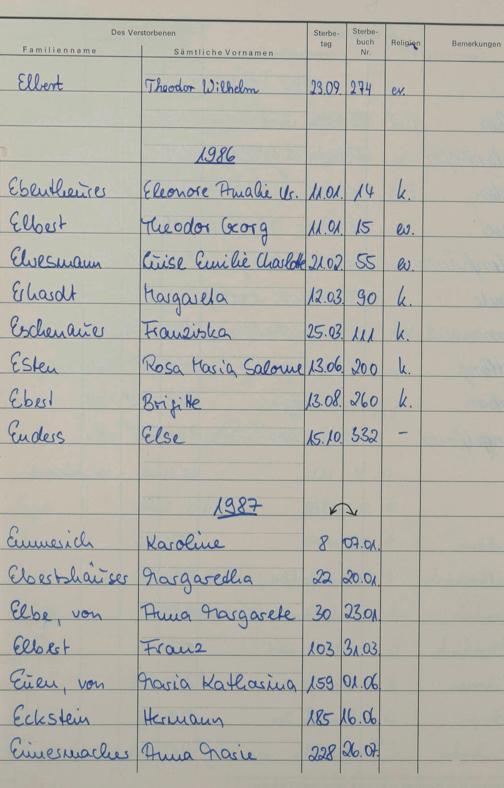 Des Verstorbenen
Familienname Sämtliche Vornamen Sterbe-tag Sterbe-buch Nr. Religion Bemerkungen
Elbert Theodor Wilhelm 23.09. 274 ev.
1986
Ebentheuer Eleonore Amalie Ur. 11.01. 14 k.
Elbert Theodor Georg 11.01. 15 ev.
Elvesmann Luise Emilie Charlotte 21.02. 55 ev.
Erhardt Margareta 12.03. 90 k.
Eschenauer Franziska 25.03. 111 k.
Esten Rosa Maria Salome 13.06. 200 k.
Ebert Brigitte 13.08. 260 k.
Enders Else 15.10. 332 -
1987
Emmerich Karoline 8 07.01.
Ebertshäuser Margaretha 22 20.01.
Elbe, von Anna Margarete 30 23.01.
Elbert Franz 103 31.03.
Euen, von Maria Katharina 159 01.06.
Eckstein Hermann 185 16.06.
Einesmacher Anna Marie 228 26.07.